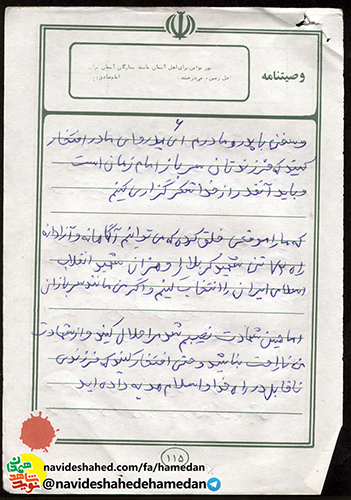 نور مؤمن برای اهل آسمان مانند ستارگان آسمان برای
اهل زمین، می‌درخشد. امام صادق (ع)
وصیتنامه
۶
و سخنی با پدر و مادرم ای پدر و ای مادر افتخار
کنید که فرزندتان سرباز امام زمان است
و باید آنقدر از خدا تشکر گزاری کنیم
که ما را موقعی خلق کرده که می توانیم آگاهانه و آزادانه
راه ۷۲ تن شهید کربلا و هزاران شهید انقلاب
اسلامی ایران را انتخاب کنیم و اگر می مانند سربازان
امام حسین شهادت نصیبم شد مرا حلال کنید و از شهادت
من ناراحت نباشید و حتی افتخار کنید که فرزندی
ناقابل در راه خدا و اسلام هدیه داده اید
۱۱۵
navideshahed.com/fa/hamedan
@navideshahedehamedan